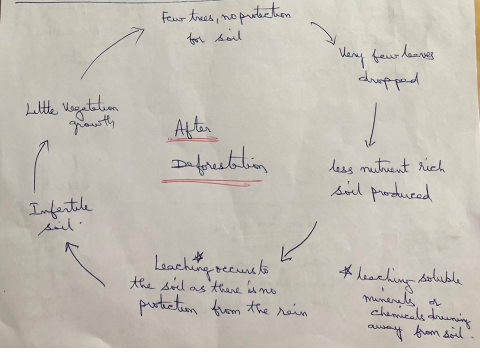 Few trees, no protection
for soil
Very few leaves
dropped
less nutrient rich
soil produced
Leaching* occurs to
the soil as there is no
protection from the rain
Infertile
soil.
Little vegetation
growth
After
Deforestation
* leaching soluble
minerals or
chemicals draining
away from soil.